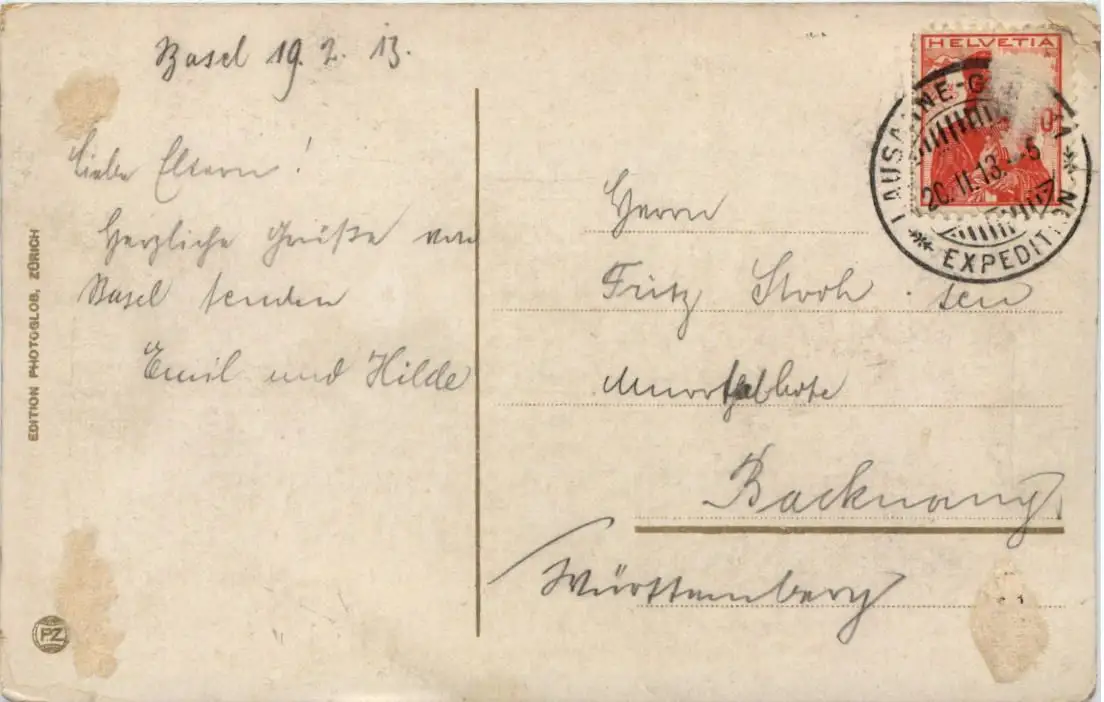 Basel 19. 2. 13.
Liebe Eltern!
Herzliche Grüße von
Basel senden
Emil und Hilde
EDITION PHOTOGLOB, ZÜRICH
PZ
HELVETIA
LAUSANNE-G
20.II.13.-5
EXPEDIT
Herrn
Fritz Stroh sen
Murrthalbote
Backnang
Württemberg